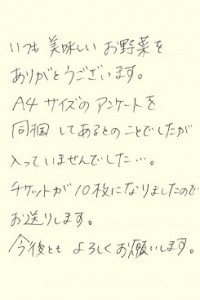 いつも美味しいお野菜を
ありがとうございます。
A4サイズのアンケートを
同梱してあるとのことでしたが
入っていませんでした…。
チケットが10枚になりましたので
お送りします。
今後ともよろしくお願いします。